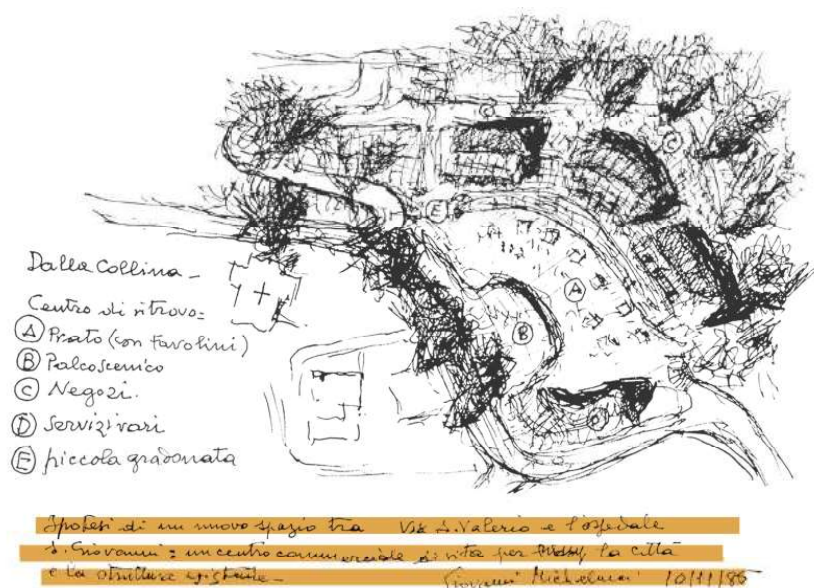 Dalla Collina -
Centro di ritrovo =
A Prato (con tavolini)
B Palcoscenico
C Negozi.
D Servizi vari
E piccola gradonata
C
C
E
A
B
D
Ipotesi di un nuovo spazio tra Via S. Valerio e l'ospedale
S. Giovanni = un centro commerciale di vita per la città
e la struttura esistente - Giovanni Michelucci 10/11/86